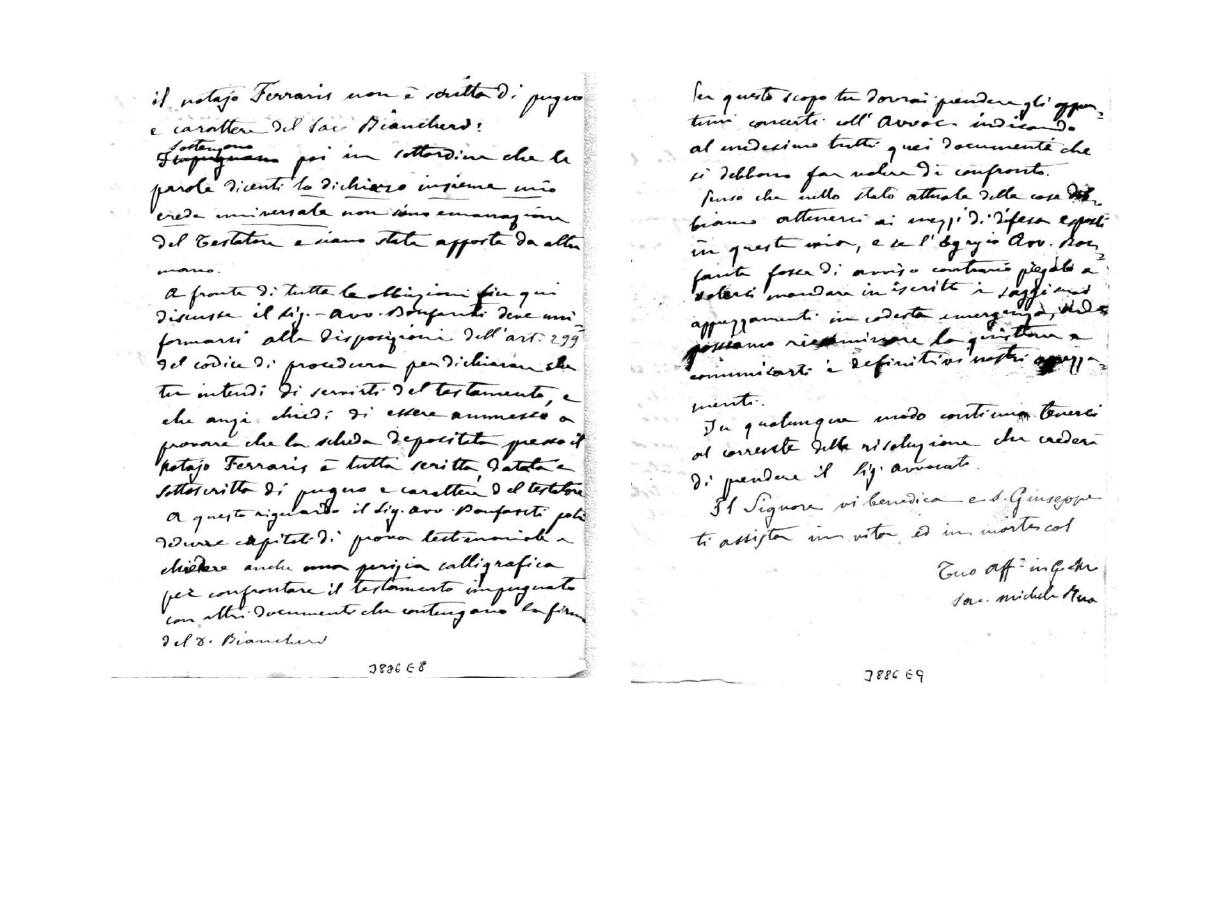 il notajo Ferraris non è scritta di pugno
e carattere del Sac. Biancheri:
Sostengono
poi in sottordine che le
parole dicenti lo dichiaro insieme mio
erede universale non sieno emanazione
del Testatore e siano state apposte da altra
mano.
A fronte di tutte le obbiezioni fin qui
discusse il Sig. Avv. Bonfanti deve uni
formarsi alle disposizioni dell'art. 299
del codice di procedura per dichiarare che
tu intendi di servirti del testamento, e
che anzi chiedi di essere ammesso a
provare che la scheda depositata presso il
notajo Ferraris è tutta scritta, datata e
sottoscritta di pugno e carattere del testatore
A questo riguardo il Sig. Avv. Bonfanti potrà
dedurre capitoli di prova testimoniale e
chiedere anche una perizia calligrafica
per confrontare il testamento impugnato
con altri documenti che contengano la firma
del D. Biancheri
J886 E8
Per questo scopo tu dovrai prendere gli oppor-
tuni concerti coll'Avvoc. indicando
al medesimo tutti quei documenti che
si debbono far valere di confronto.
Penso che nello stato attuale delle cose dob-
biamo attenerci ai mezzi di difesa esposti
in questa mia, e se l'Egregio Avv. Bon-
fante fosse di avviso contrario pregalo a
volerci mandare in iscritto i saggi suoi
apprezzamenti in codesta emergenza,
possamo riesaminare la quistione e
comunicarti i definitivi nostri apprezza-
menti.
In qualunque modo continua tenerci
al corrente delle risoluzione che crederà
di prendere il Sig. avvocato.
Il Signore vi benedica e S. Giuseppe
ti assista in vita ed in morte
Tuo Aff. in G. e M.
Sac. Michele Rua
J886 E9